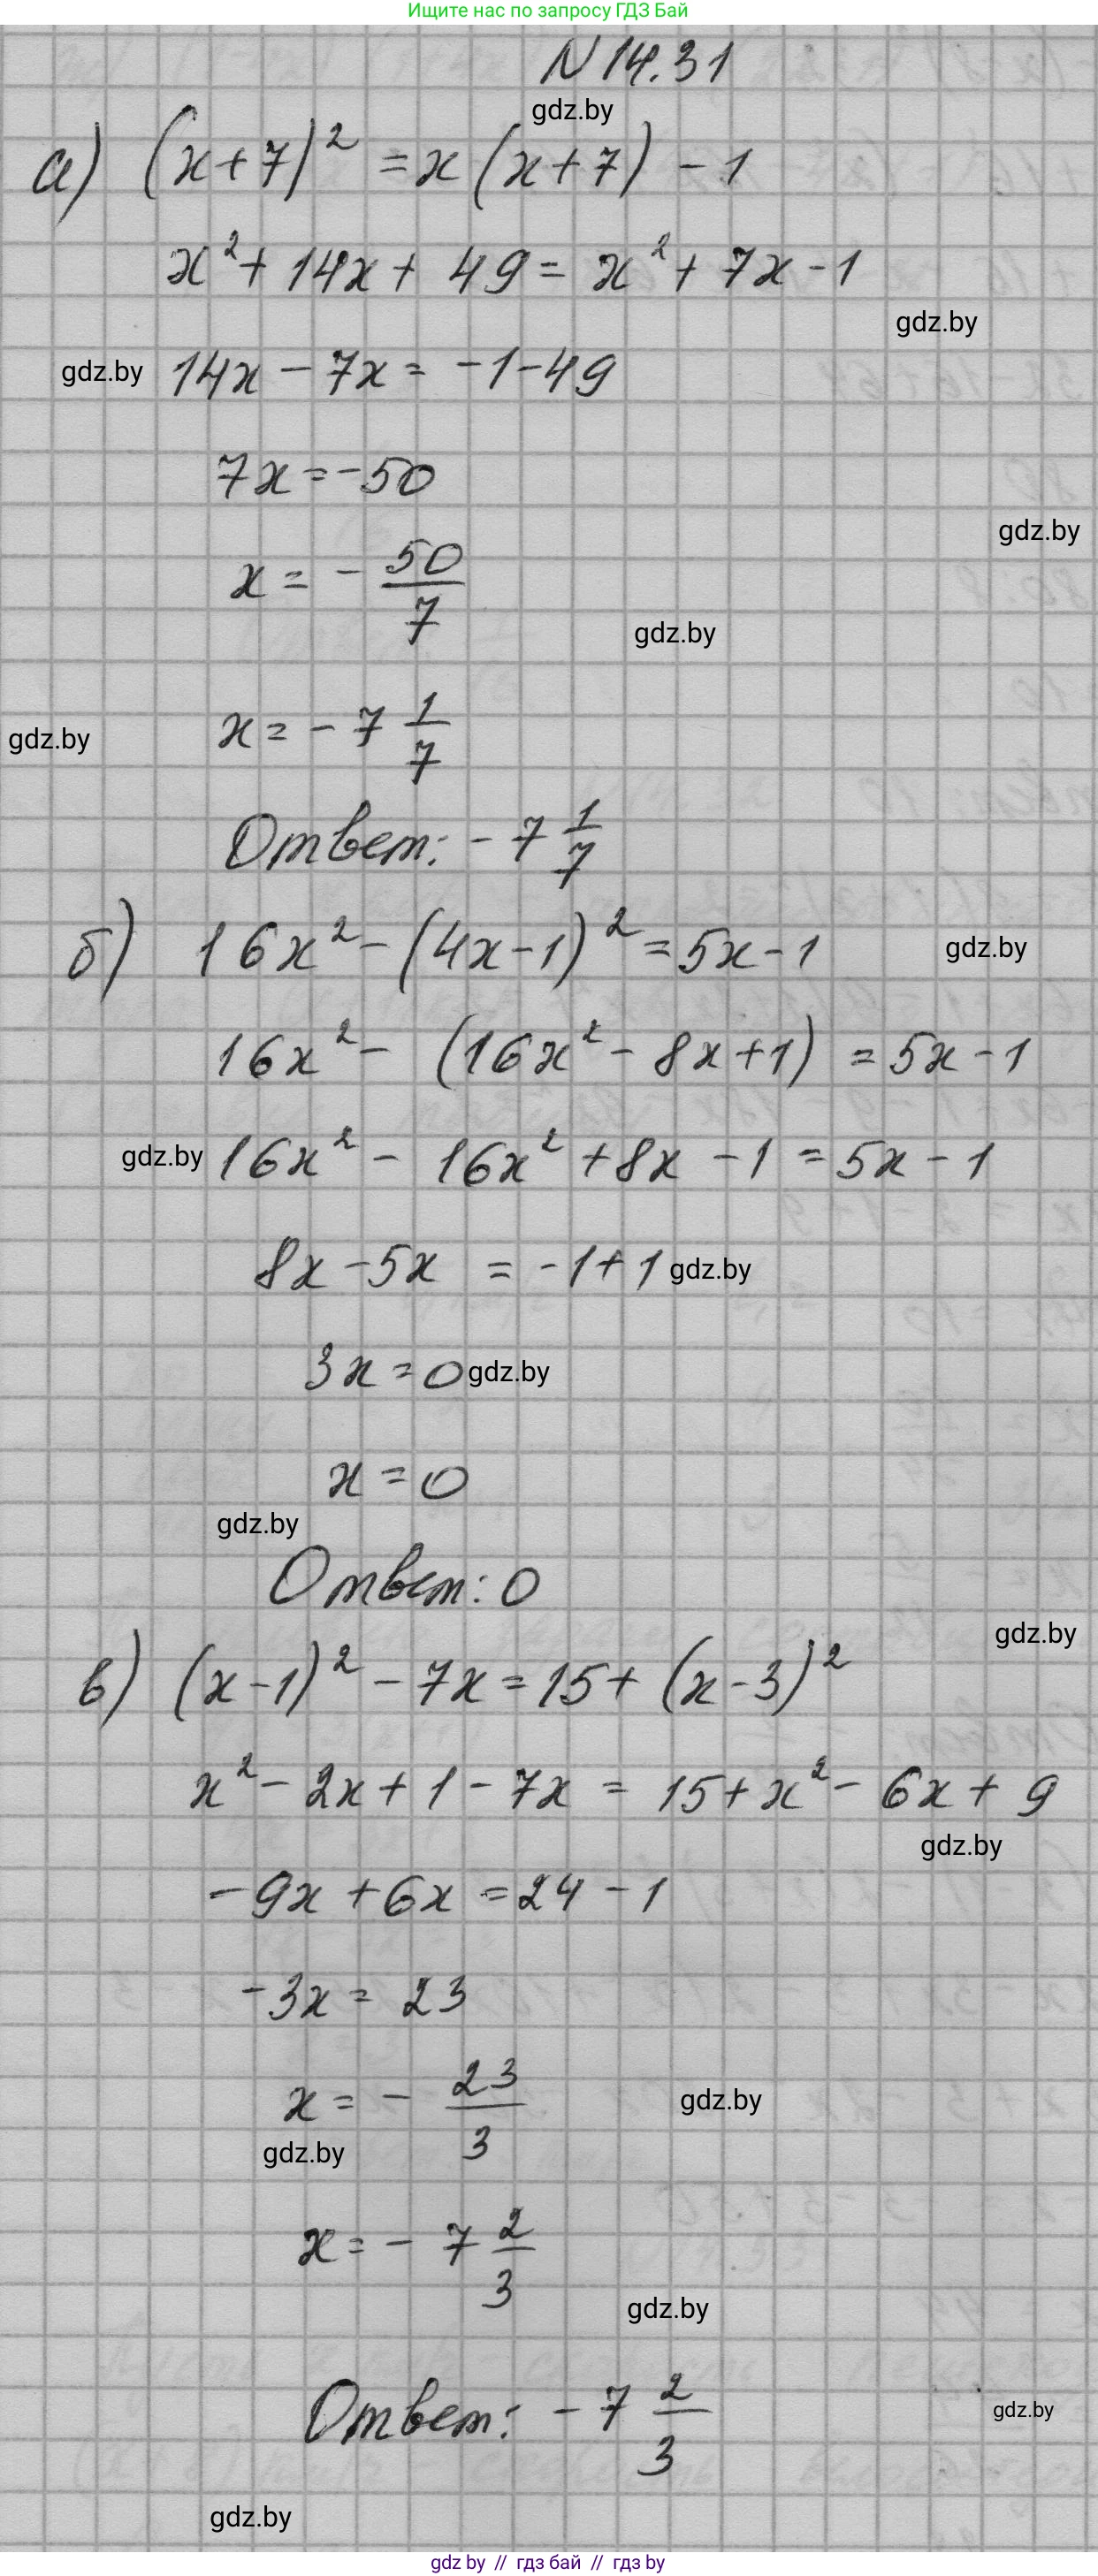 Ищите нас по запросу ГДЗ Бай
N 14.31
gdz.by
а) (x+7)² = x(x+7) - 1
x² + 14x + 49 = x² + 7x - 1
gdz.by
gdz.by 14x - 7x = -1 - 49
7x = -50
gdz.by
x = - 50/7
gdz.by
x = - 7 1/7
gdz.by
Ответ: - 7 1/7
б) 16x² - (4x-1)² = 5x - 1
gdz.by
16x² - (16x² - 8x + 1) = 5x - 1
gdz.by 16x² - 16x² + 8x - 1 = 5x - 1
8x - 5x = -1 + 1 gdz.by
3x = 0 gdz.by
x = 0
gdz.by
Ответ: 0
gdz.by
в) (x-1)² - 7x = 15 + (x-3)²
x² - 2x + 1 - 7x = 15 + x² - 6x + 9
gdz.by
-9x + 6x = 24 - 1
-3x = 23
x = - 23/3
gdz.by
gdz.by
x = - 7 2/3
gdz.by
Ответ: - 7 2/3
gdz.by
gdz.by
gdz by // гдз бай // гдз by